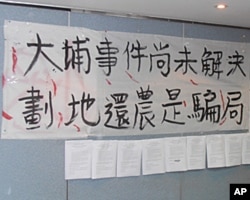 大埔事件尚未解決
劃地還農是騙局
AP